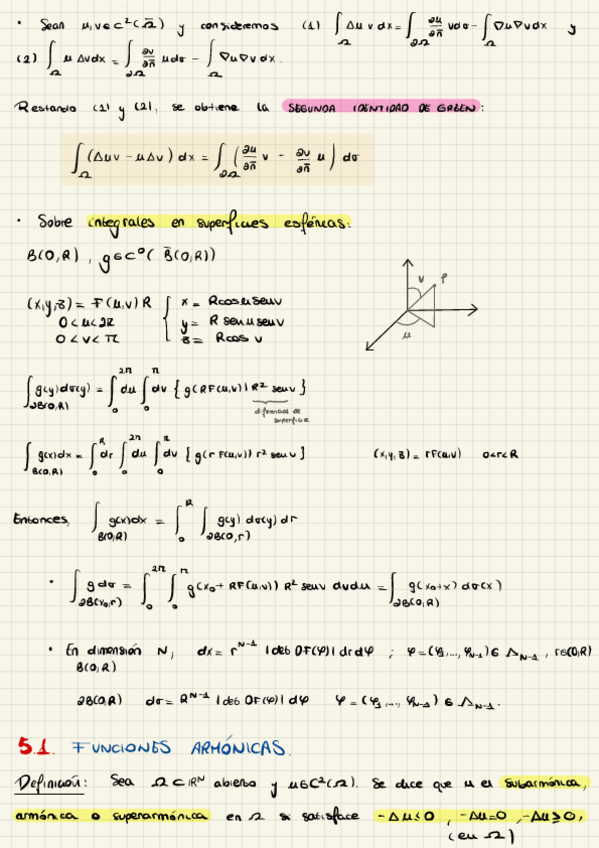 · Sean μ,v∈C²(Ω̄) y consideremos (1) ∫_Ω Δu v dx = ∫_∂Ω ∂u/∂n̄ v dσ - ∫_Ω ∇u ∇v dx y
(2) ∫_Ω u Δv dx = ∫_∂Ω ∂v/∂n̄ u dσ - ∫_Ω ∇u ∇v dx.
Restando (1) y (2), se obtiene la SEGUNDA IDENTIDAD DE GREEN:
∫_Ω (Δu v - u Δv) dx = ∫_∂Ω (∂u/∂n̄ v - ∂v/∂n̄ u) dσ
· Sobre integrales en superficies esféricas:
B(0,R), g∈C⁰(B̄(0,R))
(x,y,z) = F(u,v) R { x = R cos u sen v
0<u<2π y = R sen u sen v
0<v<π z = R cos v
v P
u
∫_∂B(0,R) g(y) dσ(y) = ∫_0^2π du ∫_0^π dv { g(R F(u,v)) R² sen v }
diferencial de
superficie
∫_B(0,R) g(x) dx = ∫_0^R dr ∫_0^2π du ∫_0^π dv { g(r F(u,v)) r² sen v } (x,y,z) = r F(u,v) 0<r<R
Entonces, ∫_B(0,R) g(x) dx = ∫_0^R ∫_∂B(0,r) g(y) dσ(y) dr
· ∫_∂B(x₀,r) g dσ = ∫_0^2π ∫_0^π g(x₀ + R F(u,v)) R² sen v dv du = ∫_∂B(0,R) g(x₀+x) dσ(x)
· En dimensión N, dx = r^{N-1} |det DF(φ)| dr dφ ; φ = (φ₁,..., φ_{N-1}) ∈ Δ_{N-1}, r∈(0,R)
B(0,R)
∂B(0,R) dσ = R^{N-1} |det DF(φ)| dφ φ = (φ₁,..., φ_{N-1}) ∈ Δ_{N-1}.
5.1. FUNCIONES ARMÓNICAS.
Definición: Sea Ω⊂ℝᴺ abierto y u∈C²(Ω). Se dice que u es subarmónica,
armónica o superarmónica en Ω si satisface -Δu≤0, -Δu=0, -Δu≥0,
(en Ω)